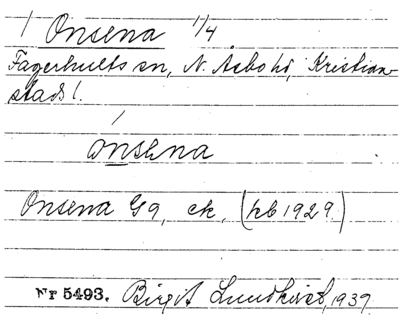 1 Onsena 1/4
Fagerhults sn, N. Åsbo hd, Kristian-
stads l.
ónsena
Onsena Gg, ek, (pb 1929)
Nr 5493. Birgit Lundkvist, 1939